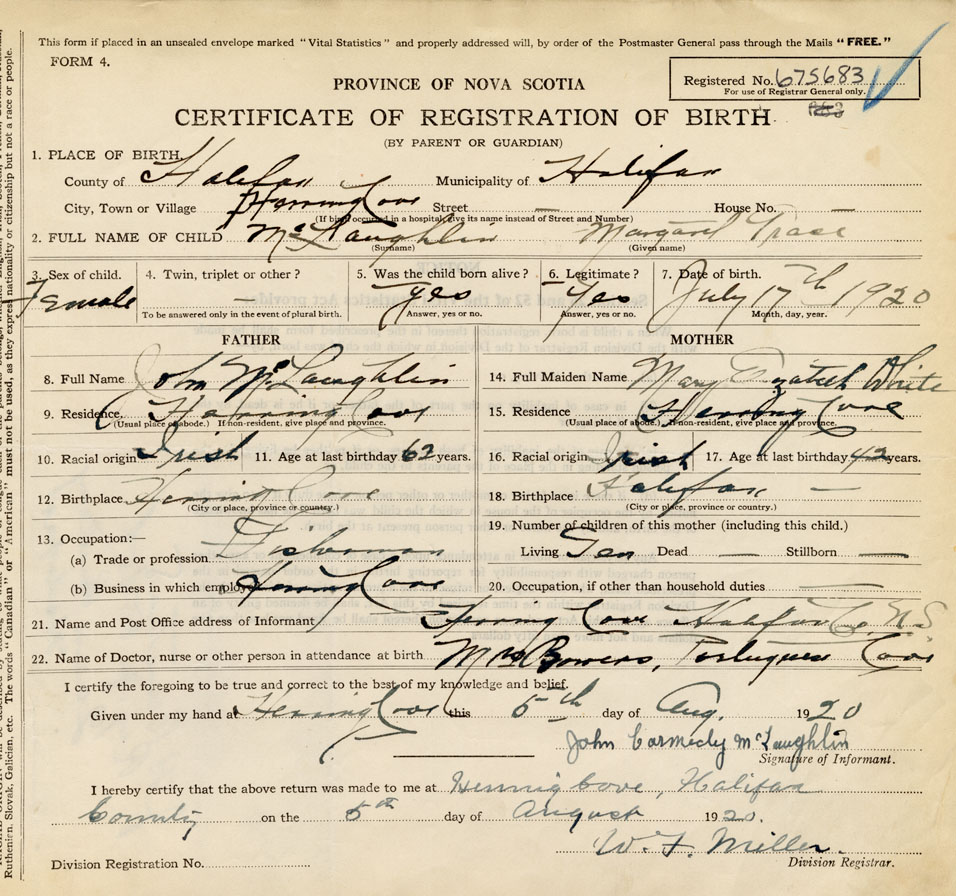 This form if placed in an unsealed envelope marked "Vital Statistics" and properly addressed will, by order of the Postmaster General pass through the Mails "FREE."
FORM 4.
Registered No. 675683
For use of Registrar General only.
PROVINCE OF NOVA SCOTIA
CERTIFICATE OF REGISTRATION OF BIRTH
(BY PARENT OR GUARDIAN)
1. PLACE OF BIRTH.
County of Halifax Municipality of Halifax
City, Town or Village Herring Cove Street — House No. —
(If birth occurred in a hospital, give its name instead of Street and Number)
2. FULL NAME OF CHILD McLaughlin Margaret
(Surname) (Given name)
3. Sex of child. 4. Twin, triplet or other? 5. Was the child born alive? 6. Legitimate? 7. Date of birth.
Female — yes Yes July 17th 1920
To be answered only in the event of plural birth. Answer, yes or no. Answer, yes or no. Month, day, year.
FATHER MOTHER
8. Full Name John McLaughlin 14. Full Maiden Name Mary Elizabeth White
9. Residence Herring Cove 15. Residence Herring Cove
(Usual place of abode.) If non-resident, give place and province. (Usual place of abode.) If non-resident, give place and province.
10. Racial origin Irish 11. Age at last birthday 62 years. 16. Racial origin Irish 17. Age at last birthday 42 years.
12. Birthplace Herring Cove 18. Birthplace Halifax —
(City or place, province or country.) (City or place, province or country.)
13. Occupation:— 19. Number of children of this mother (including this child.)
(a) Trade or profession Fisherman Living Ten Dead — Stillborn —
(b) Business in which employed Herring Cove 20. Occupation, if other than household duties
21. Name and Post Office address of Informant Herring Cove Halifax Co. N.S
22. Name of Doctor, nurse or other person in attendance at birth Mrs Bowers, Portuguese Cove
I certify the foregoing to be true and correct to the best of my knowledge and belief.
Given under my hand at Herring Cove this 5th day of Aug. 1920
John McLaughlin
Signature of Informant.
I hereby certify that the above return was made to me at Herring Cove, Halifax
County on the 5th day of August 1920.
W. F. Miller.
Division Registrar No. Division Registrar.